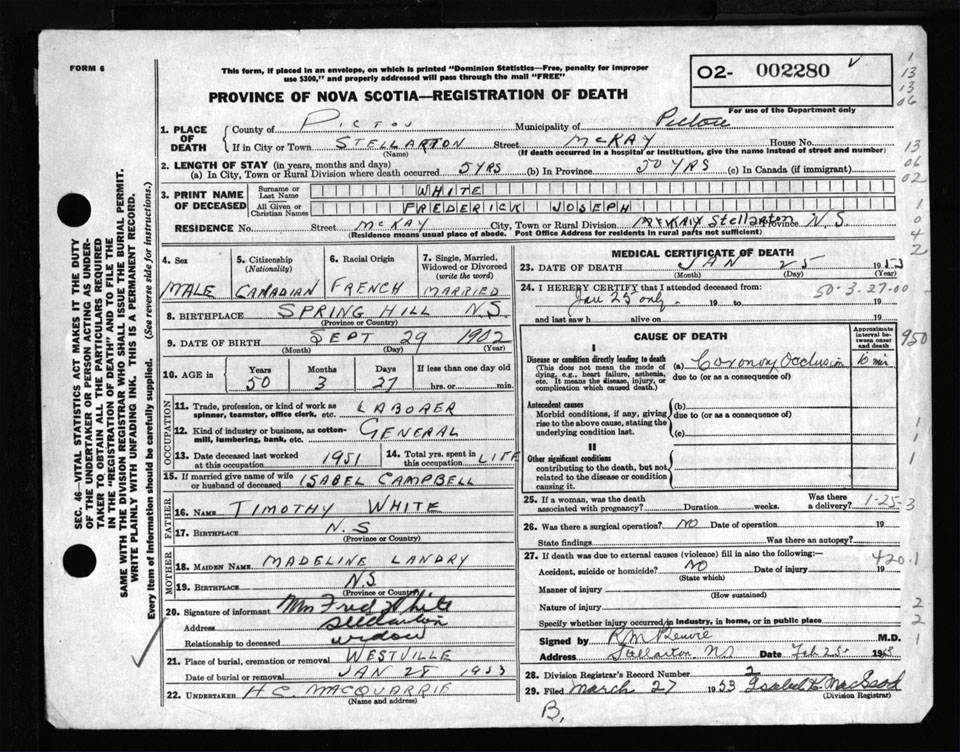 FORM 6
This form, if placed in an envelope, on which is printed "Dominion Statistics—Free, penalty for improper
use $300," and properly addressed will pass through the mail "FREE"
O2- 002280 V
PROVINCE OF NOVA SCOTIA—REGISTRATION OF DEATH
For use of the Department only
1
13
13
06
1. PLACE OF DEATH { County of PICTOU Municipality of Pictou
If in City or Town STELLARTON Street McKAY House No.
(Name) (If death occurred in a hospital or institution, give the name instead of street and number)
13
06
02
2. LENGTH OF STAY (in years, months and days)
(a) In City, Town or Rural Division where death occurred 5 YRS (b) In Province 50 YRS (c) In Canada (if immigrant)
3. PRINT NAME OF DECEASED { Surname or Last Name WHITE
All Given or Christian Names FREDERICK JOSEPH
1
0
4
2
RESIDENCE No. Street McKAY City, Town or Rural Division McKAY Stellarton Province N.S.
(Residence means usual place of abode. Post Office Address for residents in rural parts not sufficient)
SEC. 46—VITAL STATISTICS ACT MAKES IT THE DUTY
OF THE UNDERTAKER OR PERSON ACTING AS UNDER-
TAKER TO OBTAIN ALL THE PARTICULARS REQUIRED
IN THE "REGISTRATION OF DEATH" AND TO FILE THE
SAME WITH THE DIVISION REGISTRAR WHO SHALL ISSUE THE BURIAL PERMIT.
WRITE PLAINLY WITH UNFADING INK. THIS IS A PERMANENT RECORD.
Every item of information should be carefully supplied. (See reverse side for instructions.)
4. Sex
MALE
5. Citizenship
(Nationality)
CANADIAN
6. Racial Origin
FRENCH
7. Single, Married,
Widowed or Divorced
(write the word)
MARRIED
8. BIRTHPLACE SPRING HILL N.S.
(Province or Country)
9. DATE OF BIRTH SEPT 29 1902
(Month) (Day) (Year)
10. AGE in { Years Months Days If less than one day old
50 3 27 hrs. or min.
OCCUPATION
11. Trade, profession, or kind of work as
spinner, teamster, office clerk, etc. LABORER
12. Kind of industry or business, as cotton-
mill, lumbering, bank, etc. GENERAL
13. Date deceased last worked
at this occupation 1951
14. Total yrs. spent in
this occupation LIFE
15. If married give name of wife
or husband of deceased ISABEL CAMPBELL
FATHER
16. NAME TIMOTHY WHITE
17. BIRTHPLACE N.S
(Province or Country)
MOTHER
18. MAIDEN NAME MADELINE LANDRY
19. BIRTHPLACE N.S
(Province or Country)
20. Signature of informant Mrs Fred White
Address Stellarton
Relationship to deceased widow
21. Place of burial, cremation or removal WESTVILLE
Date of burial or removal JAN 28 1953
22. UNDERTAKER H.C. MACQUARRIE
(Name and address)
MEDICAL CERTIFICATE OF DEATH
23. DATE OF DEATH JAN 25 1953
(Month) (Day) (Year)
24. I HEREBY CERTIFY that I attended deceased from:
50-3-27-00
Jan 25 only 19 to 19
and last saw h alive on 19
CAUSE OF DEATH
Approximate
interval between
onset
and death
950
I
Disease or condition directly leading to death
(This does not mean the mode of
dying, e.g., heart failure, asthenia,
etc. It means the disease, injury, or
complication which caused death.)
(a) Coronary Occlusion 10 min
due to (or as a consequence of)
Antecedent causes
Morbid conditions, if any, giving
rise to the above cause, stating the
underlying condition last.
(b)
due to (or as a consequence of)
(c)
1
1
II
Other significant conditions
contributing to the death, but not
related to the disease or condition
causing it.
1
25. If a woman, was the death
associated with pregnancy? Duration weeks. Was there
a delivery?
1-25-3
26. Was there a surgical operation? NO Date of operation 19
State findings Was there an autopsy?
27. If death was due to external causes (violence) fill in also the following:
420.1
Accident, suicide or homicide? NO Date of injury 19
(State which)
Manner of injury
(How sustained)
Nature of injury
2
Specify whether injury occurred in industry, in home, or in public place
2
Signed by M.D.
1
Address Stellarton NS Date Feb 25
28. Division Registrar's Record Number 2
29. Filed March 27 1953
(Division Registrar)
B.